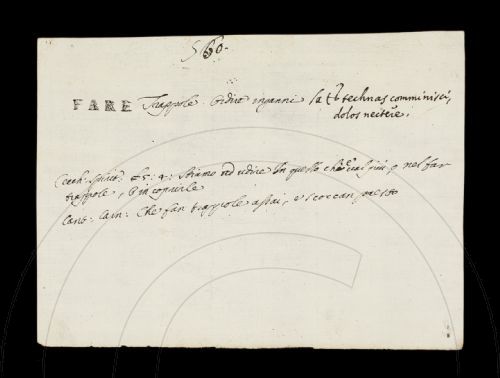 560.
FARE Trappole. Ordire inganni. la technas comminisci,
dolos nectere.
Cecch. 5: 4: Stiamo ad udire In quello che val più, o nel far
trappole, o in coprirle
Cant: Carn: Che fan trappole assai, e scoccan presto